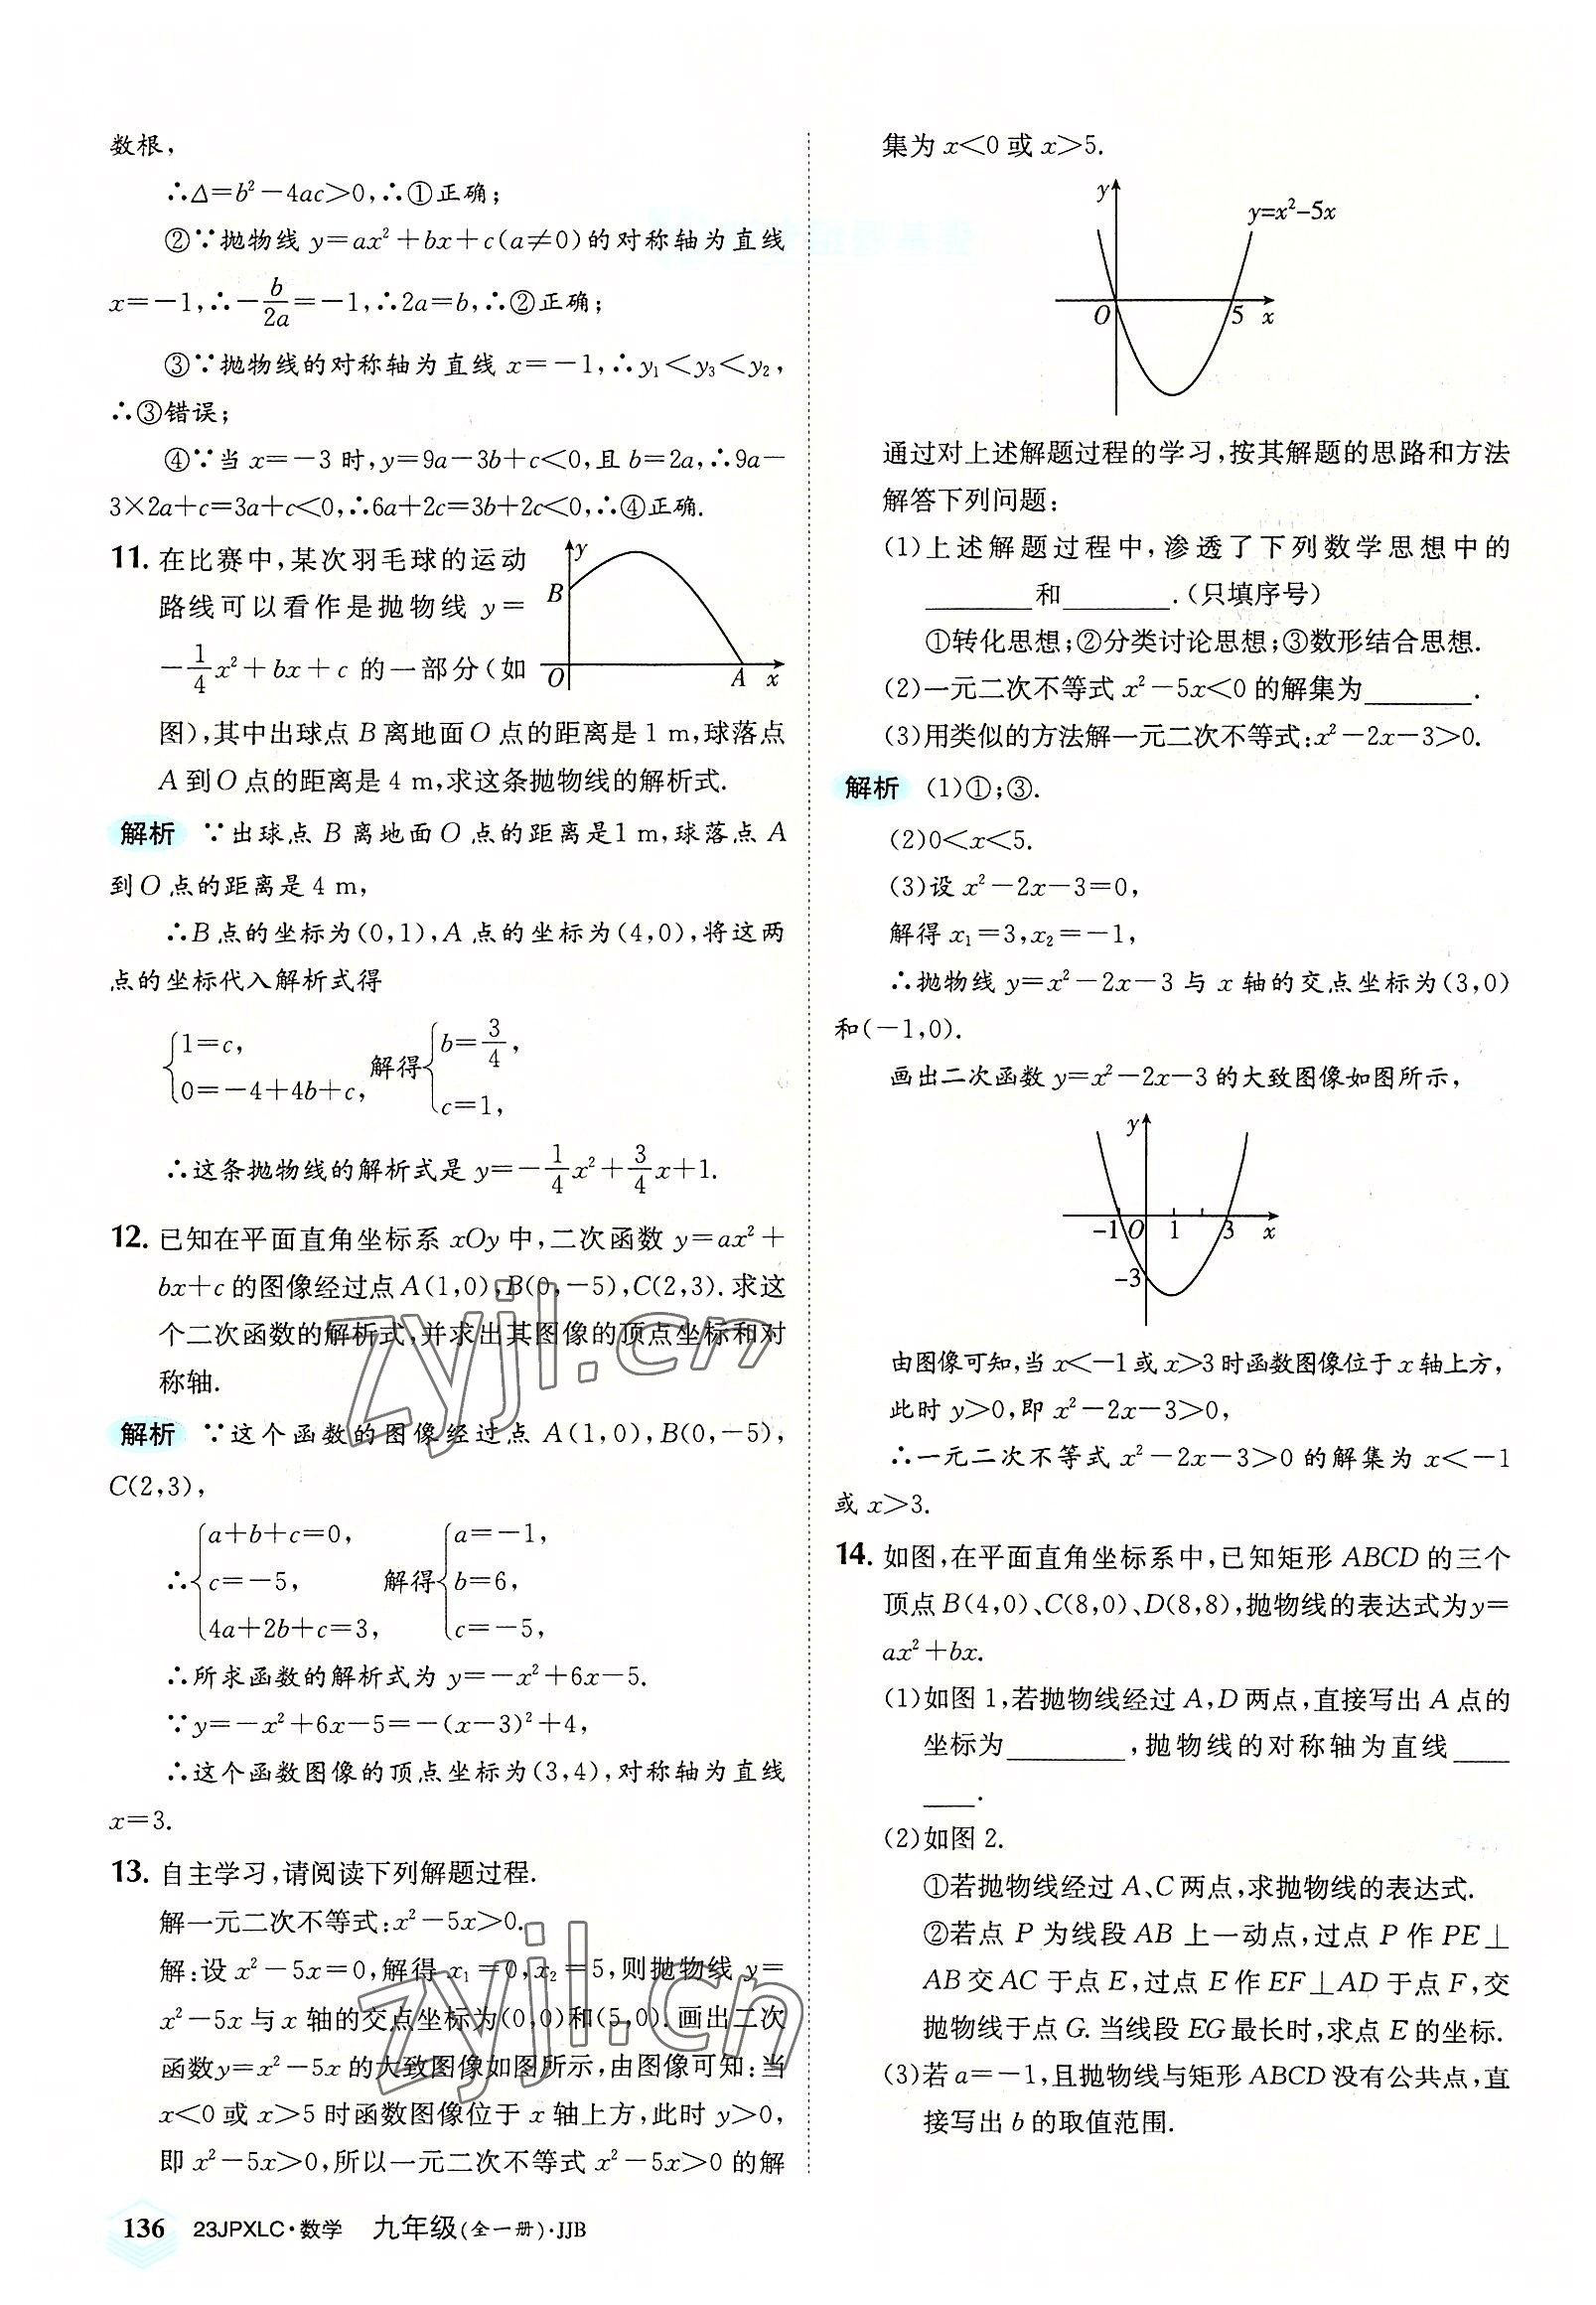 数根,
∴Δ=b²-4ac>0,∴①正确;
②∵抛物线 y=ax²+bx+c(a≠0)的对称轴为直线
x=-1,∴-b/2a=-1,∴2a=b,∴②正确;
③∵抛物线的对称轴为直线 x=-1,∴y₁<y₃<y₂,
∴③错误;
④∵当 x=-3 时,y=9a-3b+c<0,且 b=2a,∴9a-
3×2a+c=3a+c<0,∴6a+2c=3b+2c<0,∴④正确.
11. 在比赛中,某次羽毛球的运动
路线可以看作是抛物线 y=
-1/4x²+bx+c 的一部分(如
图),其中出球点 B 离地面 O 点的距离是 1 m,球落点
A 到 O 点的距离是 4 m,求这条抛物线的解析式.
y
B
O
A
x
解析 ∵出球点 B 离地面 O 点的距离是1 m,球落点 A
到 O 点的距离是 4 m,
∴B 点的坐标为(0,1),A 点的坐标为(4,0),将这两
点的坐标代入解析式得
{1=c, 0=-4+4b+c, 解得{b=3/4, c=1,
∴这条抛物线的解析式是 y=-1/4x²+3/4x+1.
12. 已知在平面直角坐标系 xOy 中,二次函数 y=ax²+
bx+c 的图像经过点 A(1,0),B(0,-5),C(2,3).求这
个二次函数的解析式,并求出其图像的顶点坐标和对
称轴.
解析 ∵这个函数的图像经过点 A(1,0),B(0,-5),
C(2,3),
∴{a+b+c=0, c=-5, 4a+2b+c=3, 解得{a=-1, b=6, c=-5,
∴所求函数的解析式为 y=-x²+6x-5.
∵y=-x²+6x-5=-(x-3)²+4,
∴这个函数图像的顶点坐标为(3,4),对称轴为直线
x=3.
13. 自主学习,请阅读下列解题过程.
解一元二次不等式:x²-5x>0.
解:设 x²-5x=0,解得 x₁=0,x₂=5,则抛物线 y=
x²-5x 与 x 轴的交点坐标为(0,0)和(5,0).画出二次
函数y=x²-5x 的大致图像如图所示,由图像可知:当
x<0 或 x>5 时函数图像位于 x 轴上方,此时 y>0,
即 x²-5x>0,所以一元二次不等式 x²-5x>0 的解
集为 x<0 或 x>5.
y
y=x²-5x
O
5
x
通过对上述解题过程的学习,按其解题的思路和方法
解答下列问题:
(1)上述解题过程中,渗透了下列数学思想中的
________和________.(只填序号)
①转化思想;②分类讨论思想;③数形结合思想.
(2)一元二次不等式 x²-5x<0 的解集为________.
(3)用类似的方法解一元二次不等式:x²-2x-3>0.
解析 (1)①;③.
(2)0<x<5.
(3)设 x²-2x-3=0,
解得 x₁=3,x₂=-1,
∴抛物线 y=x²-2x-3 与 x 轴的交点坐标为(3,0)
和(-1,0).
画出二次函数 y=x²-2x-3 的大致图像如图所示,
y
-1
O
1
3
x
-3
由图像可知,当 x<-1 或 x>3 时函数图像位于 x 轴上方,
此时 y>0,即 x²-2x-3>0,
∴一元二次不等式 x²-2x-3>0 的解集为 x<-1
或 x>3.
14. 如图,在平面直角坐标系中,已知矩形 ABCD 的三个
顶点 B(4,0)、C(8,0)、D(8,8),抛物线的表达式为y=
ax²+bx.
(1)如图 1,若抛物线经过 A,D 两点,直接写出 A 点的
坐标为________,抛物线的对称轴为直线____
____.
(2)如图 2.
①若抛物线经过 A、C 两点,求抛物线的表达式.
②若点 P 为线段 AB 上一动点,过点 P 作 PE⊥
AB 交 AC 于点 E,过点 E 作 EF⊥AD 于点 F,交
抛物线于点 G.当线段 EG 最长时,求点 E 的坐标.
(3)若 a=-1,且抛物线与矩形 ABCD 没有公共点,直
接写出 b 的取值范围.
zyjl.cn
zyjl.cn
136 23JPXLC·数学 九年级(全一册)·JJB